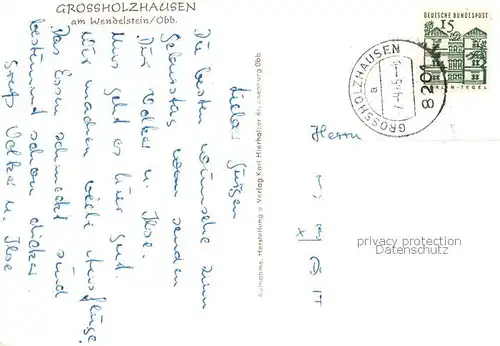 GROSSHOLZHAUSEN
am Wendelstein/Obb.
Lieber Jürgen
Die besten wünsche zum
Geburtstag senden
Dir Volker u. Ilse.
Uns geht es hier gut.
Wir machen viele Ausflüge.
Das Essen schmeckt sind
bestimmt schon dicker.
Gruß Volker u. Ilse
Aufnahme, Herstellung u. Verlag Karl Hierholzer Brannenburg Obb.
DEUTSCHE BUNDESPOST
15
BERLIN-TEGEL
8201 GROSSHOLZHAUSEN
a
Herrn
privacy protection
Datenschutz